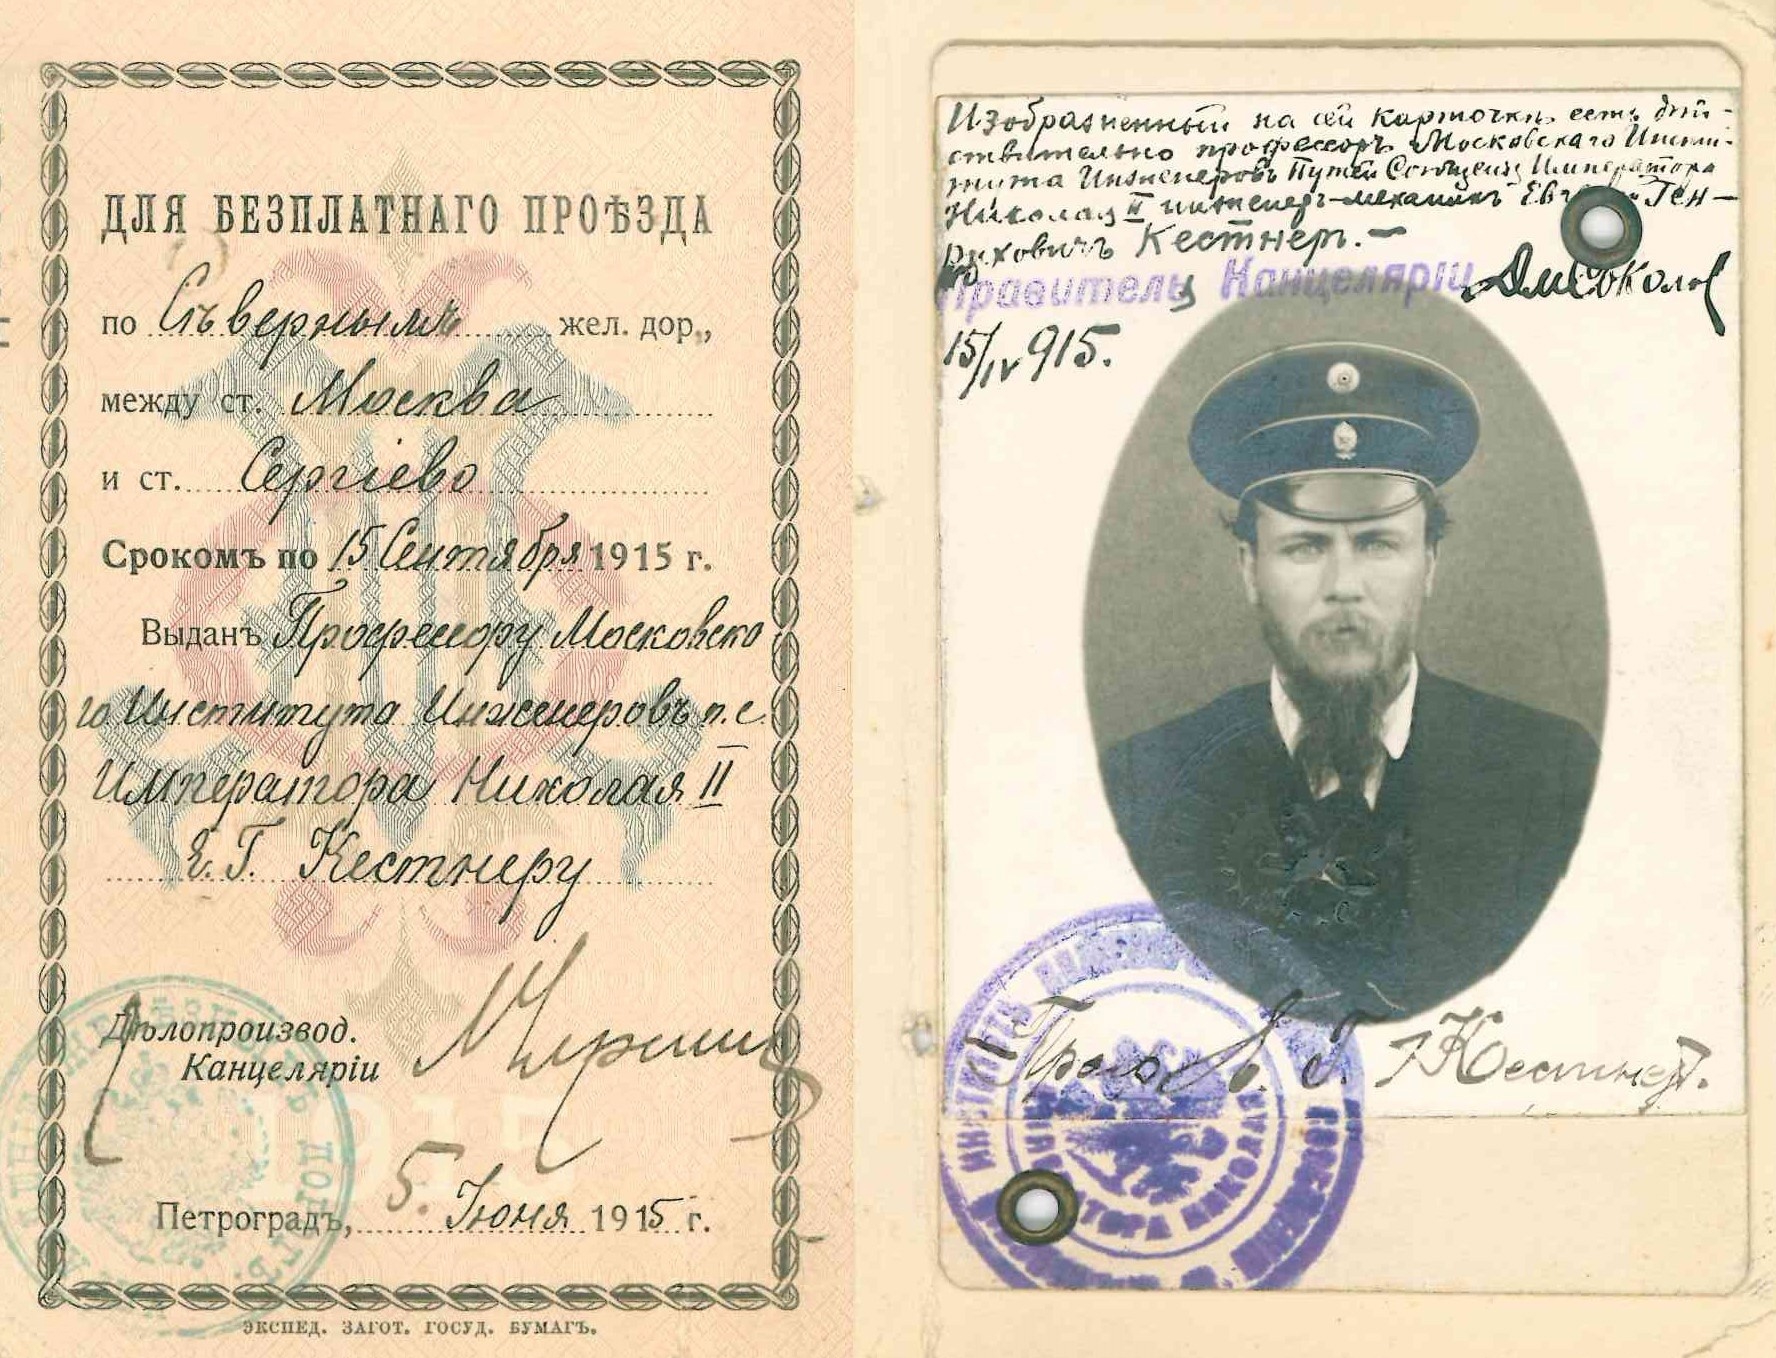 ДЛЯ БЕЗПЛАТНАГО ПРОѢЗДА
по Сѣвернымъ жел. дор.,
между ст. Москва
и ст. Сергіево
Срокомъ по 15 Сентября 1915 г.
Выданъ Профессору Московско
го Института Инженеровъ п. с.
Императора Николая II
Е. Г. Кестнеру
Дѣлопроизвод.
Канцеляріи
Петроградъ, 5 Іюня 1915 г.
ЭКСПЕД. ЗАГОТ. ГОСУД. БУМАГЪ.
Изображенный на сей карточкѣ есть дѣй-
ствительно профессоръ Московскаго Инсти-
тута Инженеровъ Путей Сообщенія Императора
Николая II инженеръ-механикъ Ген-
риховичъ Кестнеръ.
Правитель Канцеляріи Дм Соколов
15/IV 915.
Проф. Е. Г. Кестнер.
ИНСТИТУТЪ ИНЖЕНЕРОВЪ
ИМПЕРАТОРА НИКОЛАЯ